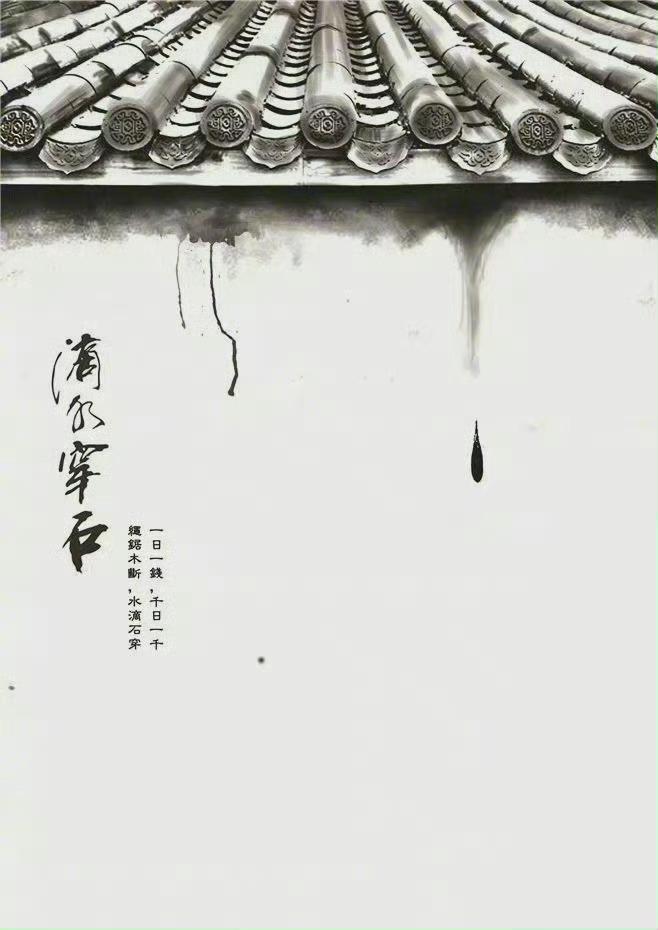 滴水穿石
一日一錢,千日一千
繩鋸木斷,水滴石穿